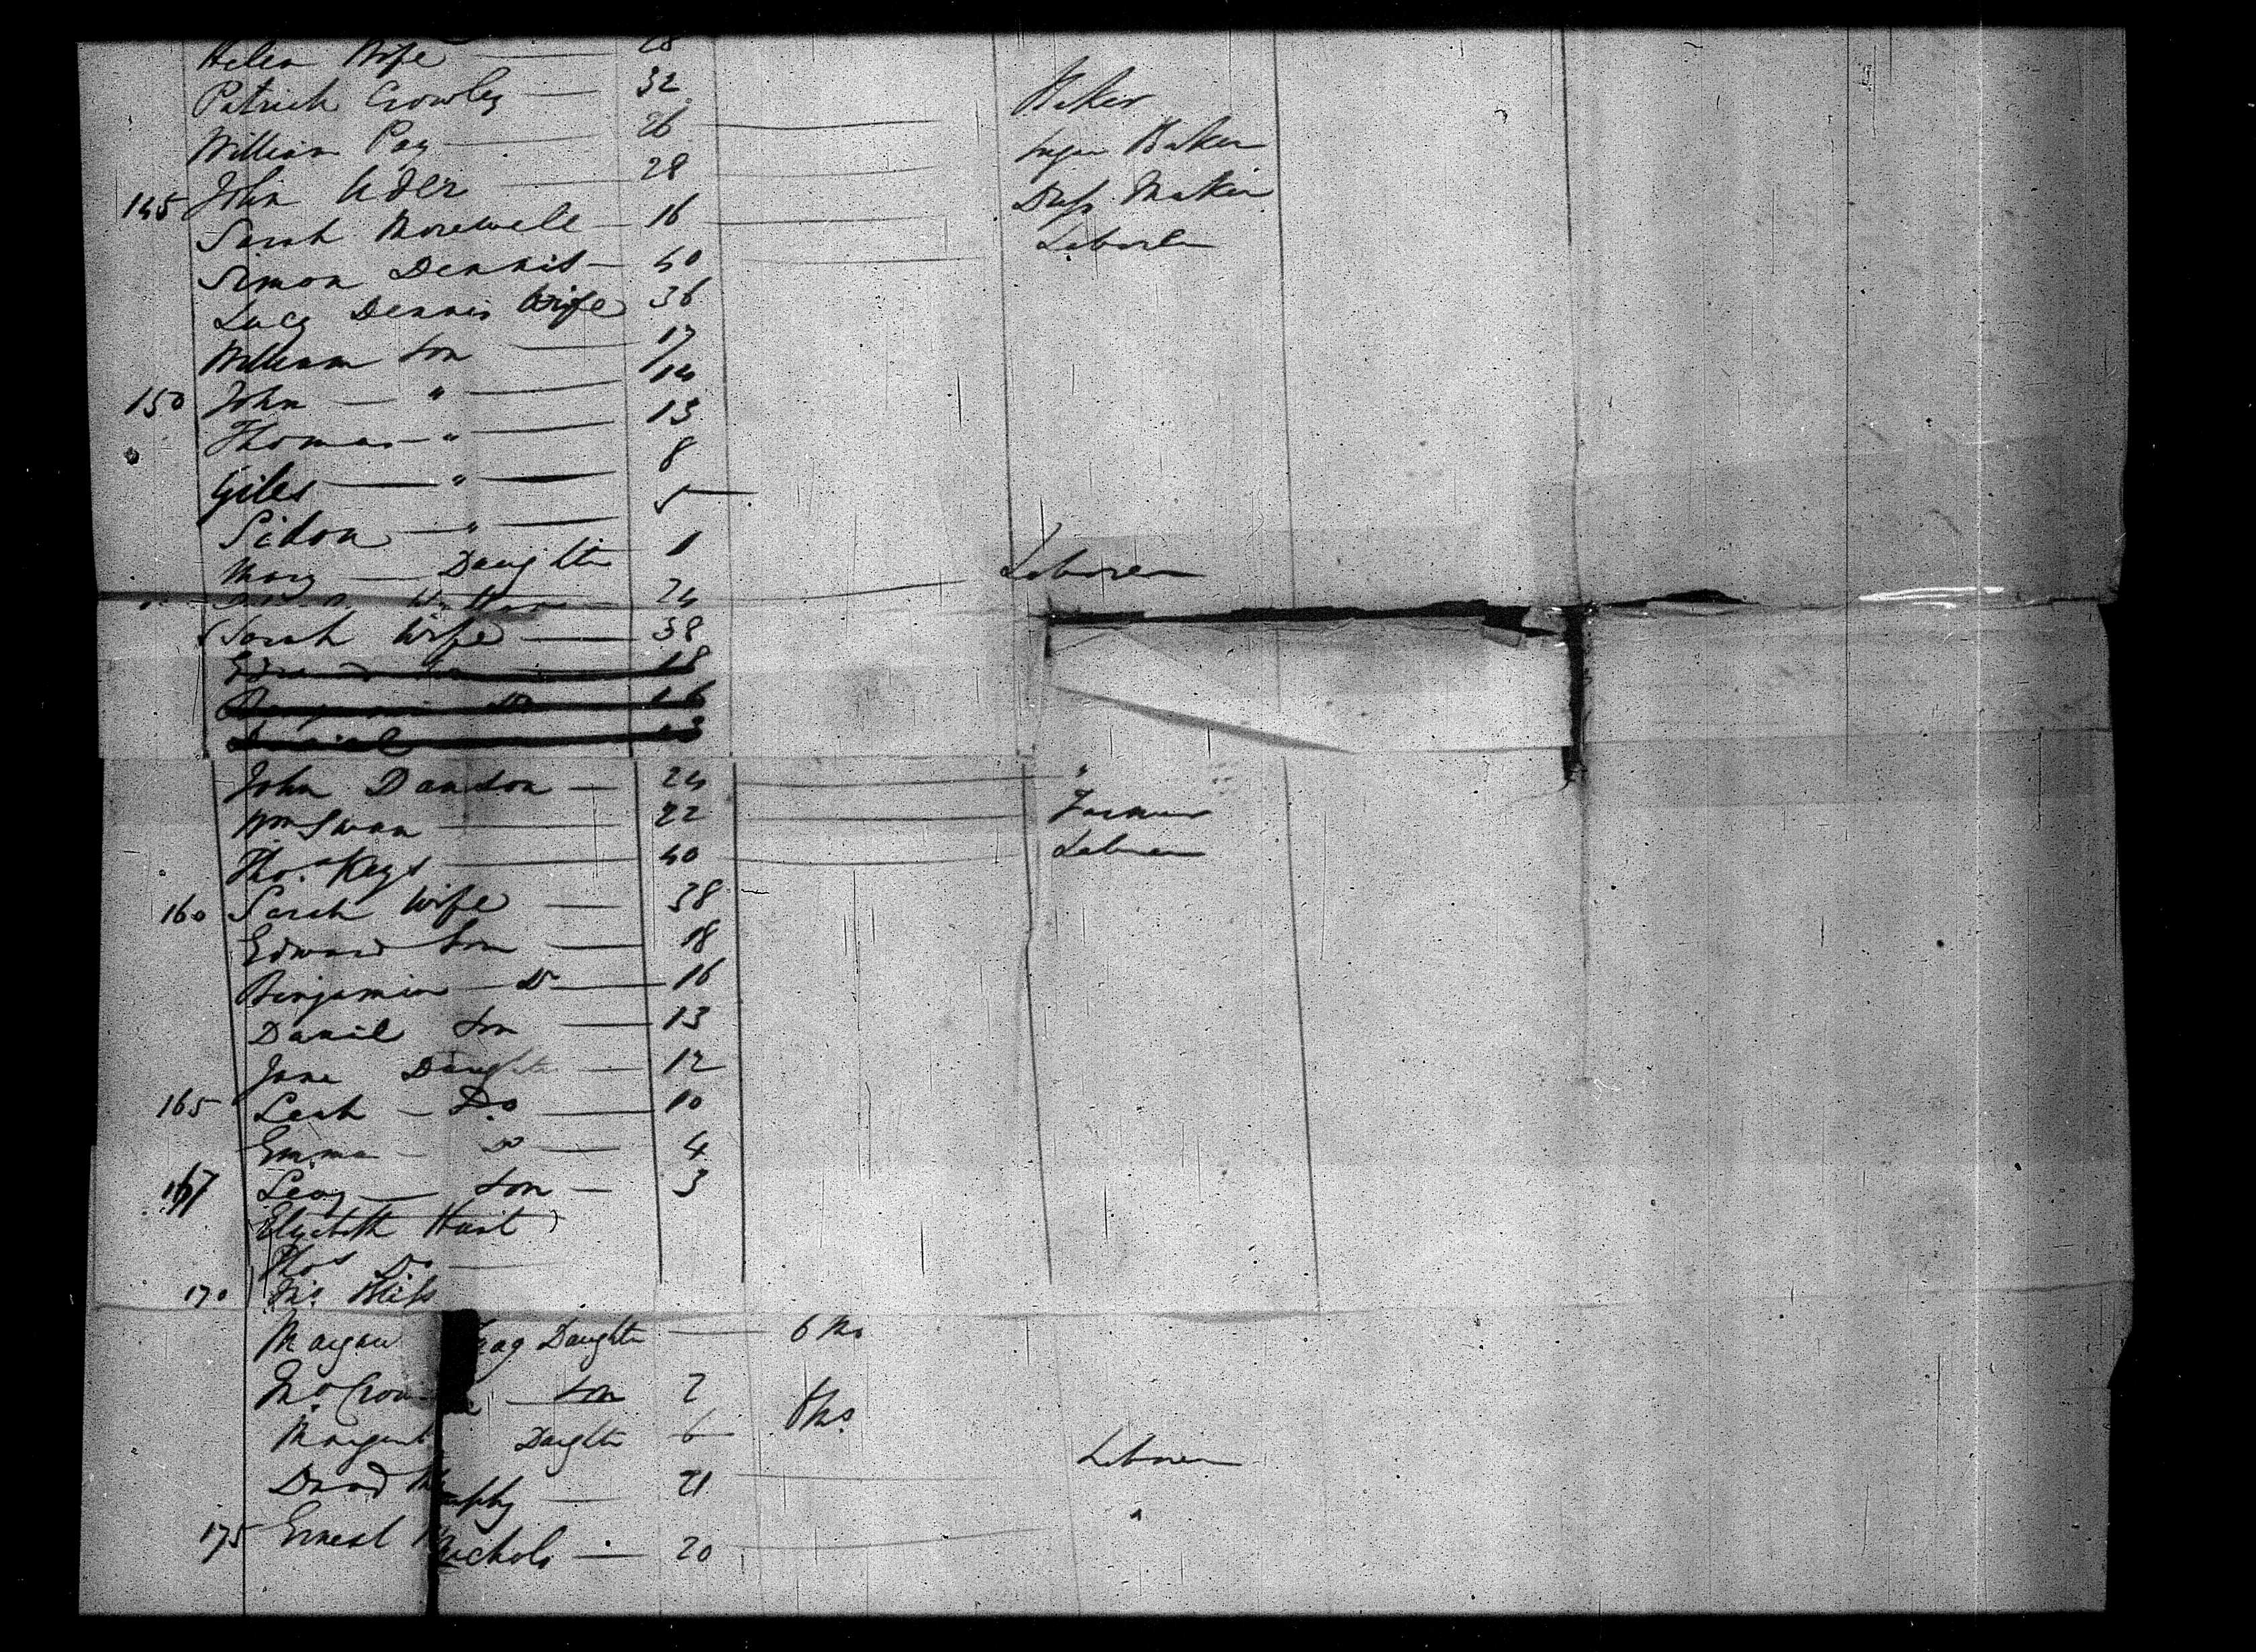 Helen Wife 28
Patrick Crowley 32 Baker
William Pay 26 Sugar Baker
145 John Ader 28
Sarah Morewell 16 Dress Maker
Simon Dennis 40 Laborer
Lucy Dennis Wife 36
William Son 17
150 John " 14
Thomas " 13
Giles " 8
Simon " 5
Mary Daughter 1
24 Laborer
Sarah Wife 38
18
16
Daniel 13
John Dawson 24 "
Wm Swan 22 Farmer
Tho.s Keys 40 Laborer
160 Sarah Wife 38
Edward Son 18
Benjamin Do 16
Daniel Son 13
Jane Daughter 12
165 Leah Do 10
Emma Do 4
167 Levy Son 3
Elizabeth Hunt
Thos Do
170 Jno.
Daughter 6 Mo
Son 2
Margaret Daughter 6 Mo.
David 21 Laborer
175 Ernest Nichols 20 "